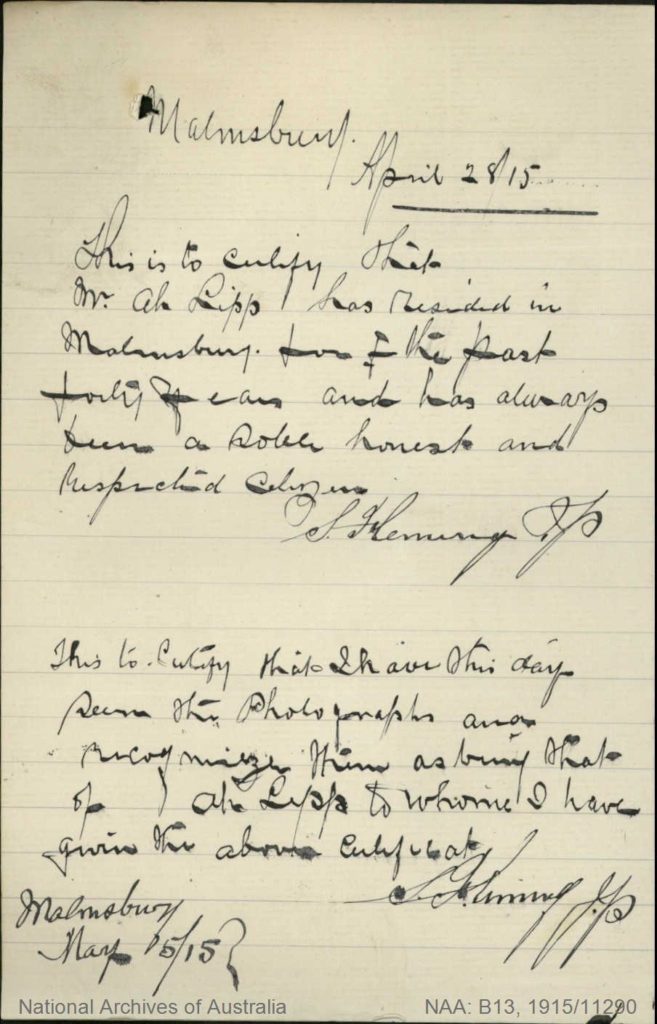 Malmsbury.
April 28/15
This is to certify that
Mr. Ah Lipp has resided in
Malmsbury. for the past
forty years and has always
been a sober honest and
respected citizen
S. Fleming J.P
This to. Certify that I have this day
seen the Photographs and
recognize them as being that
of Ah Lipp to whome I have
given the above certificate
S. Fleming J.P
Malmsbury
May 15/15
National Archives of Australia NAA: B13, 1915/11290